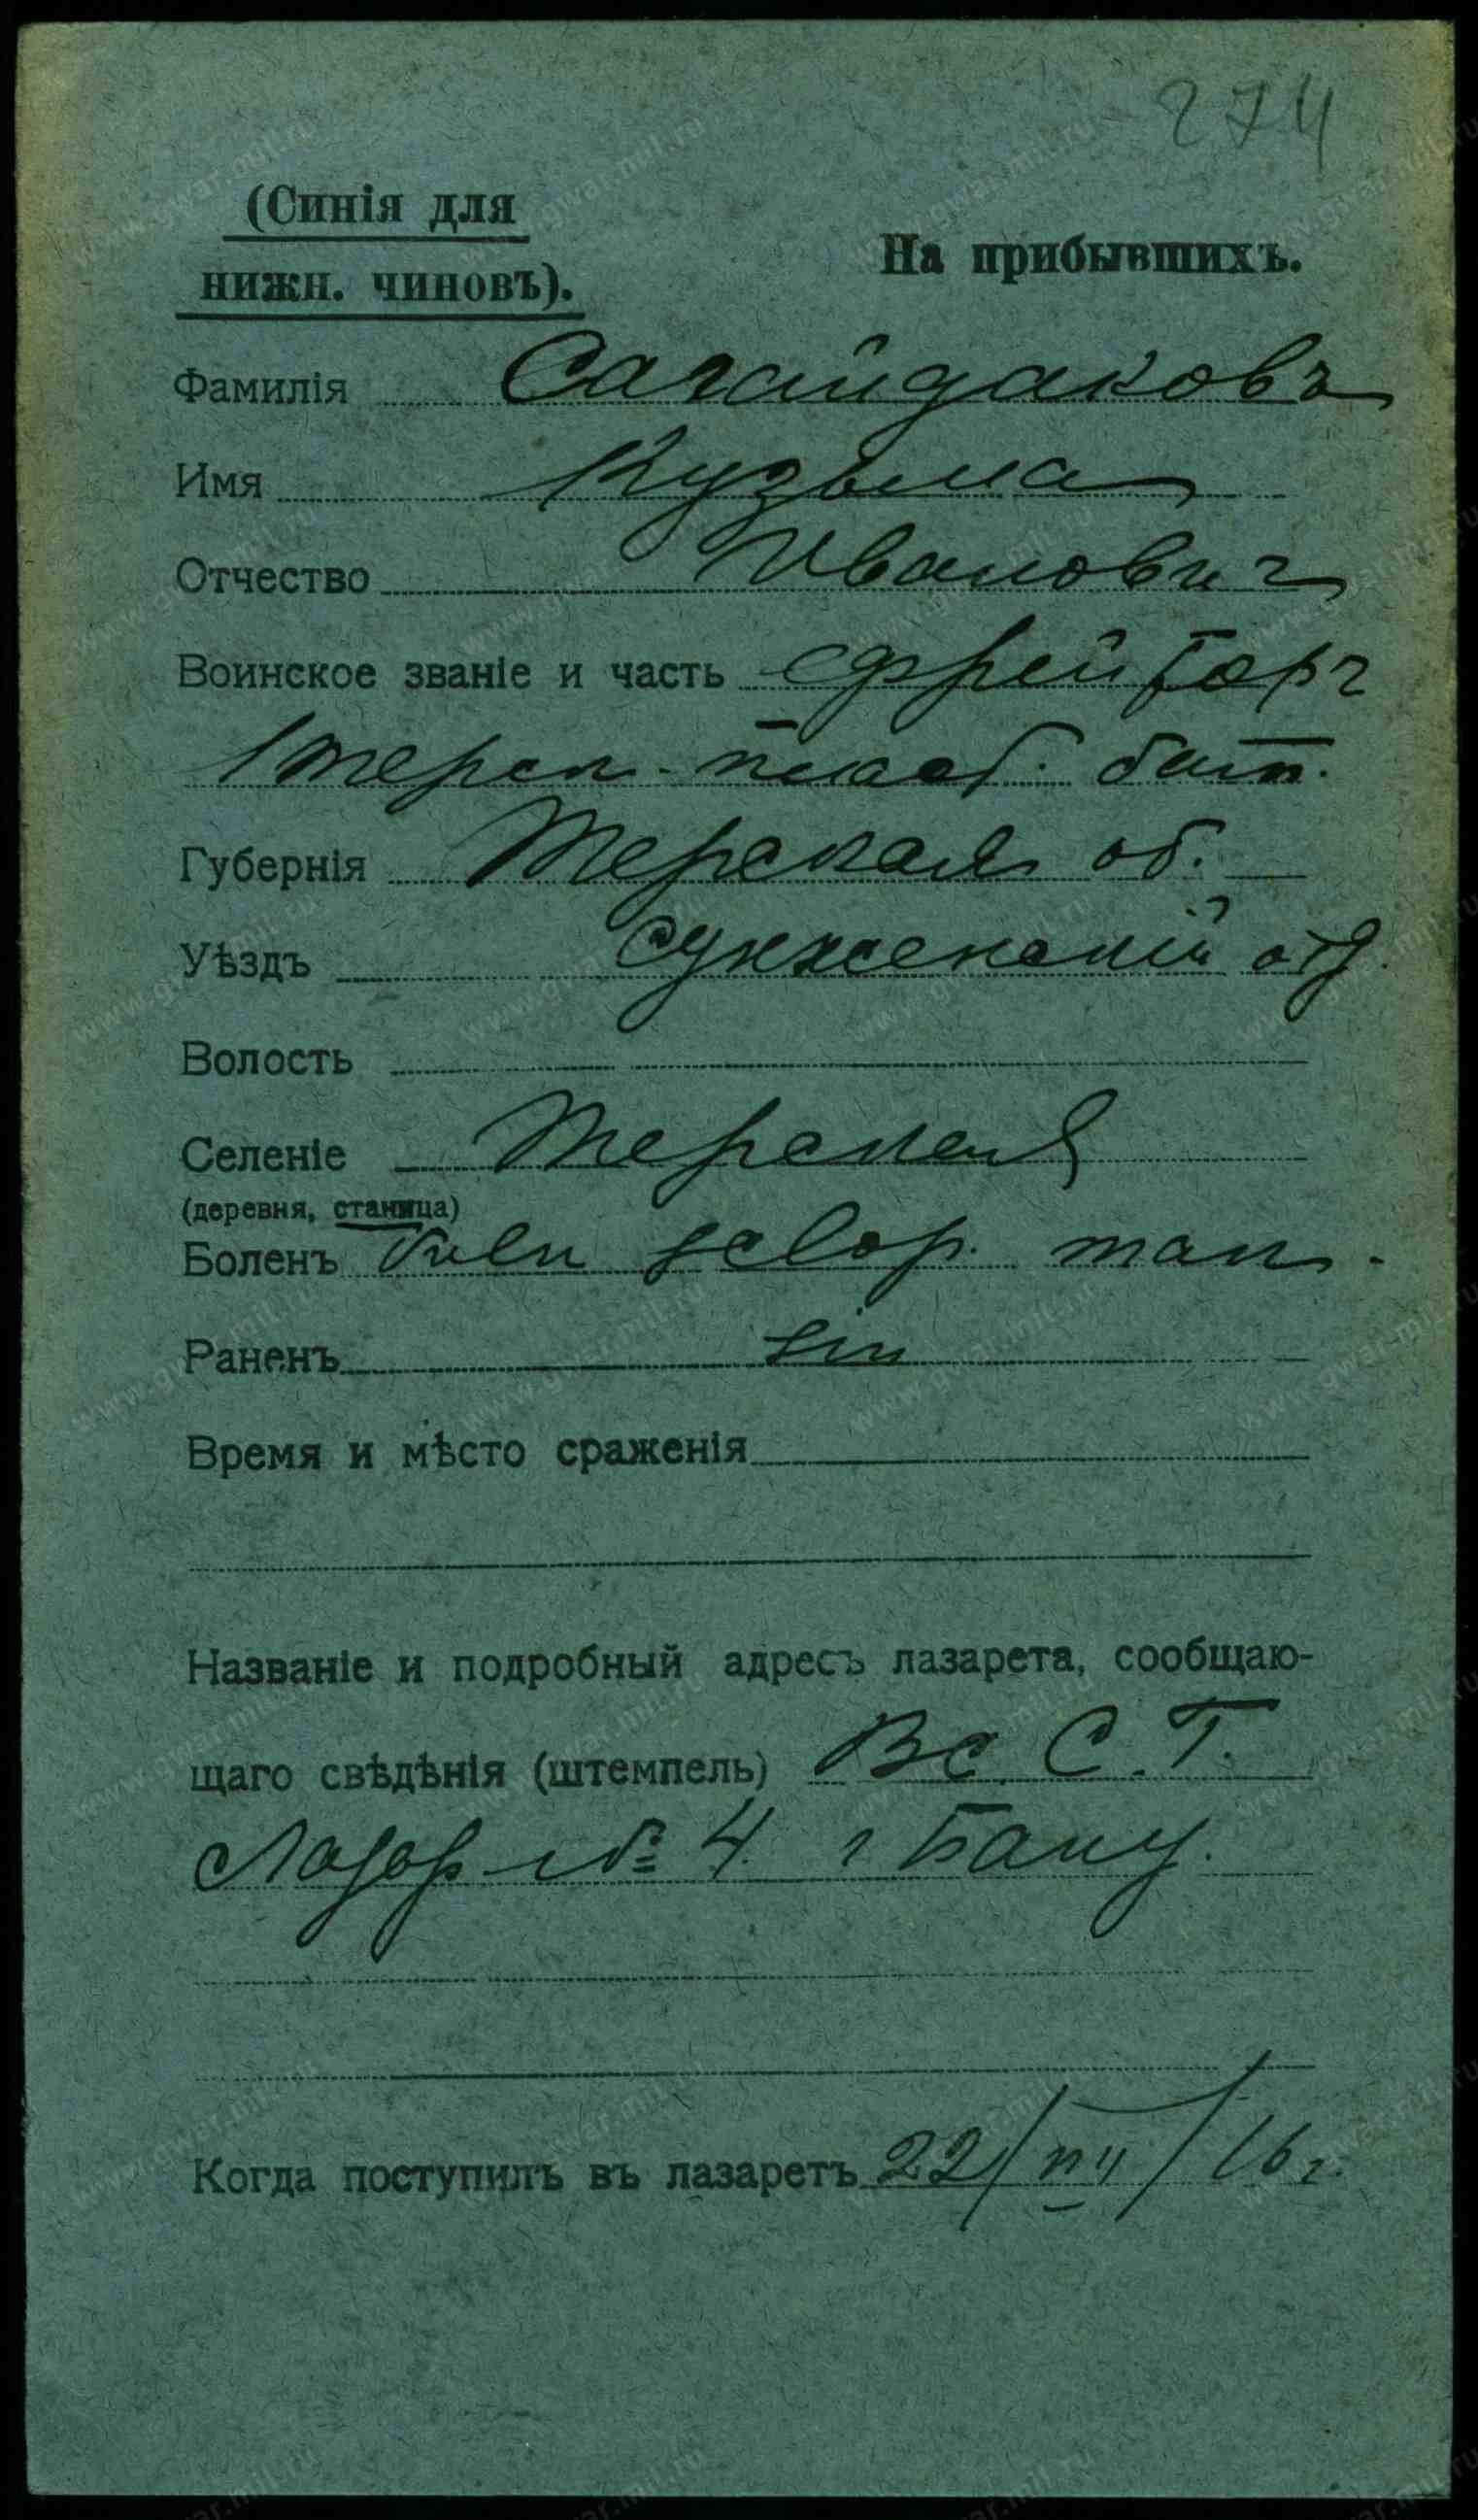 274
(Синія для
нижн. чиновъ).
На прибывшихъ.
Фамилія Сагайдаковъ
Имя Кузьма
Отчество Иванович
Воинское званіе и часть ефрейторъ
1 терск. пласт. бат.
Губернія Терская об.
Уѣздъ Сунженскій отд.
Волость
Селеніе Терская
(деревня, станица)
Боленъ Vuln sclop. man.
Раненъ sin
Время и мѣсто сраженія
Названіе и подробный адресъ лазарета, сообщаю-
щаго свѣдѣнія (штемпель) Вс. С. Г.
Лазар № 4. г Баку.
Когда поступилъ въ лазаретъ 22/VII/16 г.